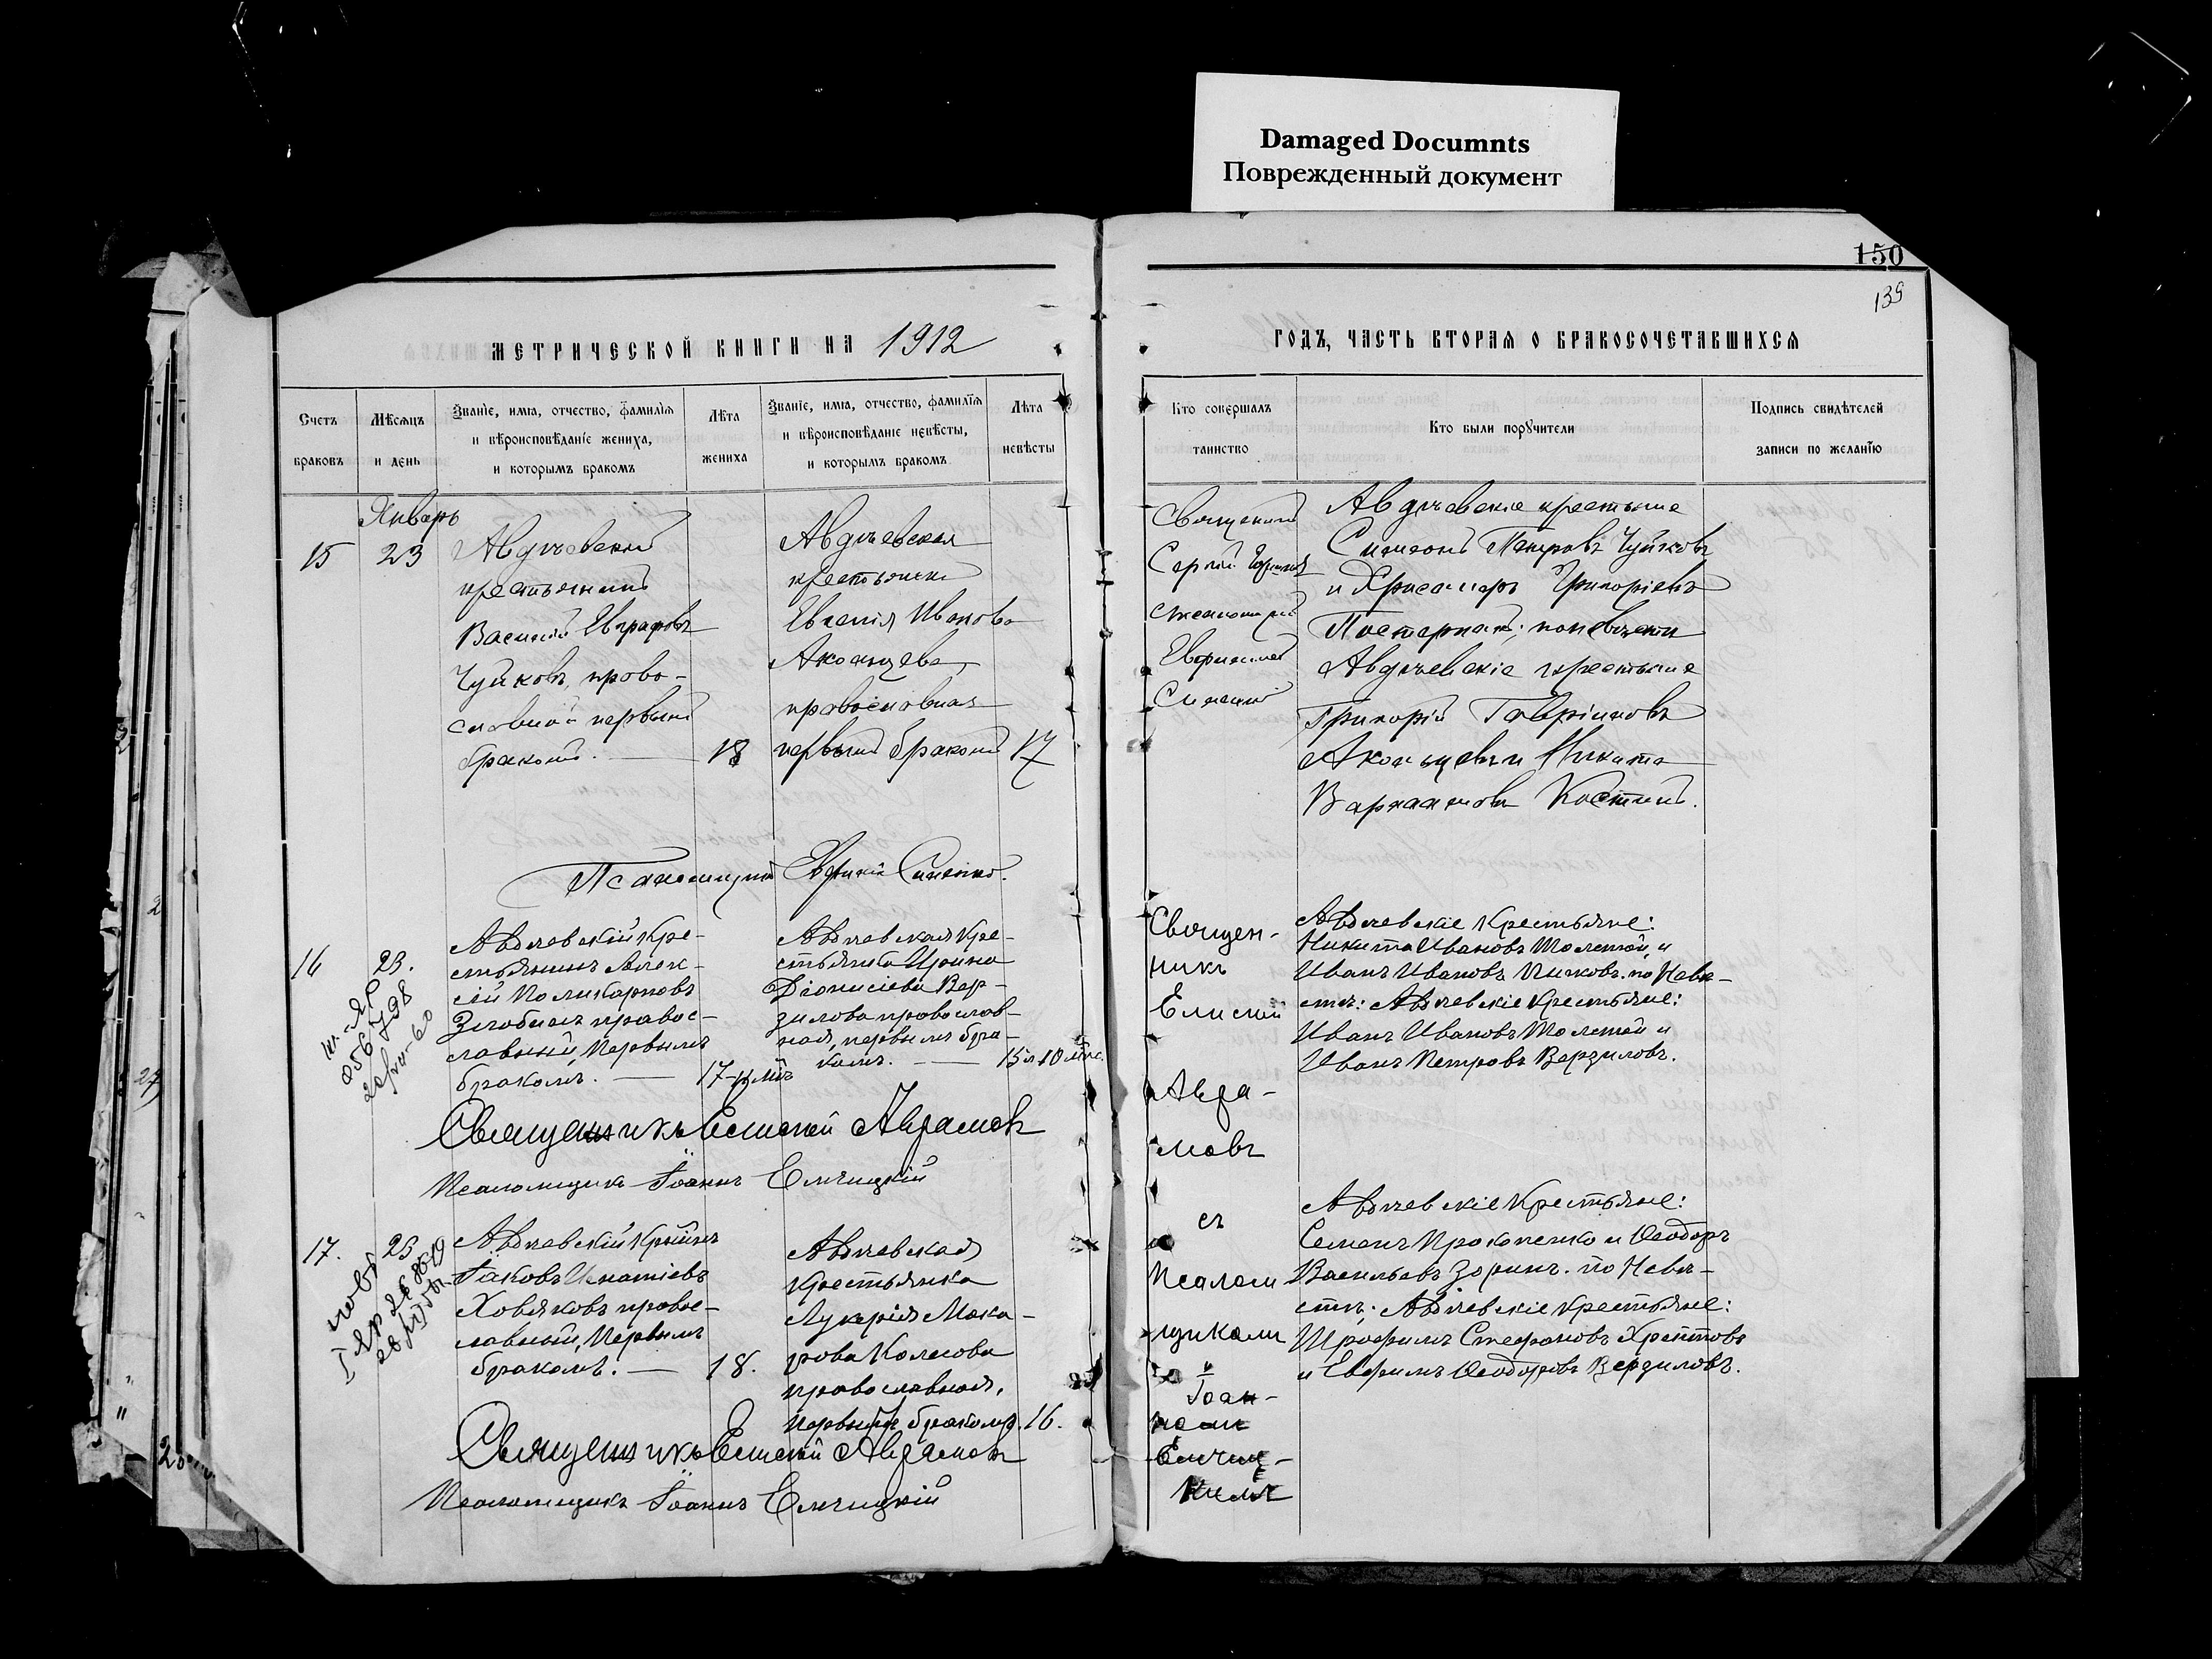 Damaged Documnts
Поврежденный документ
150
139
МЕТРИЧЕСКОЙ КНИГИ НА 1912
ГОДЪ, ЧАСТЬ ВТОРАЯ О БРАКОСОЧЕТАВШИХСЯ
Счетъ браковъ
Мѣсяцъ и день
Званіе, имя, отчество, фамилія
и вѣроисповѣданіе жениха,
и которымъ бракомъ
Лѣта жениха
Званіе, имя, отчество, фамилія
и вѣроисповѣданіе невѣсты,
и которымъ бракомъ
Лѣта невѣсты
Кто совершалъ таинство
Кто были поручители
Подпись свидѣтелей
записи по желанію
Январь
15
23
Авдѣевскій
крестьянинъ
Василій Евграфовъ
Чуйковъ, право-
славной первымъ
бракомъ.
18
Авдѣевская
крестьянка
Евгенія Иванова
православная
первымъ бракомъ
17
Священникъ
Сергій
Евфимій
Авдѣевскіе крестьяне
Симеонъ Петровъ Чуйковъ
и Хрисанфъ Григоріевъ
Авдѣевскіе крестьяне
Григорій Гавріиловъ
Никита
Варлаамовъ Костинъ.
Псаломщикъ Евфимій
16
23.
III-ЯР
056798
Авдѣевскій кре-
стьянинъ Алек-
сій Поликарповъ
Злобинъ правос-
лавный, первымъ
бракомъ.
17
Авдѣевская кре-
стьянка Ирина
Діонисіева Вер-
зилова православ-
ная, первымъ бра-
комъ.
15 л 10 мѣс.
Священ-
никъ
Елисей
Авра-
мовъ
съ
псалом
щикомъ
Іоан-
номъ
Елчиц-
кимъ
Авдѣевскіе крестьяне:
Никита Ивановъ Толстой, и
Иванъ Ивановъ по Невѣ-
стѣ: Авдѣевскіе крестьяне:
Иванъ Ивановъ Толстой и
Иванъ Петровъ Верзиловъ.
Священникъ Елисей Аврамов
Псаломщикъ Іоаннъ Елчицкій
17.
23
Авдѣевскій
Іаковъ Игнатіевъ
Ховяковъ правос-
лавный, первымъ
бракомъ.
18.
Авдѣевская
крестьянка
Лукерія Мака-
рова Колесова
православная,
первымъ бракомъ.
16.
Авдѣевскіе крестьяне:
Семенъ Прокопенко и Ѳеодоръ
Васильевъ Зоринъ. по Невѣ-
стѣ: Авдѣевскіе крестьяне:
Трофимъ Стефановъ Хрептовъ
и Евфимъ Ѳеодоровъ Верзиловъ.
Священникъ Елисей Аврамов
Псаломщикъ Іоаннъ Елчицкій